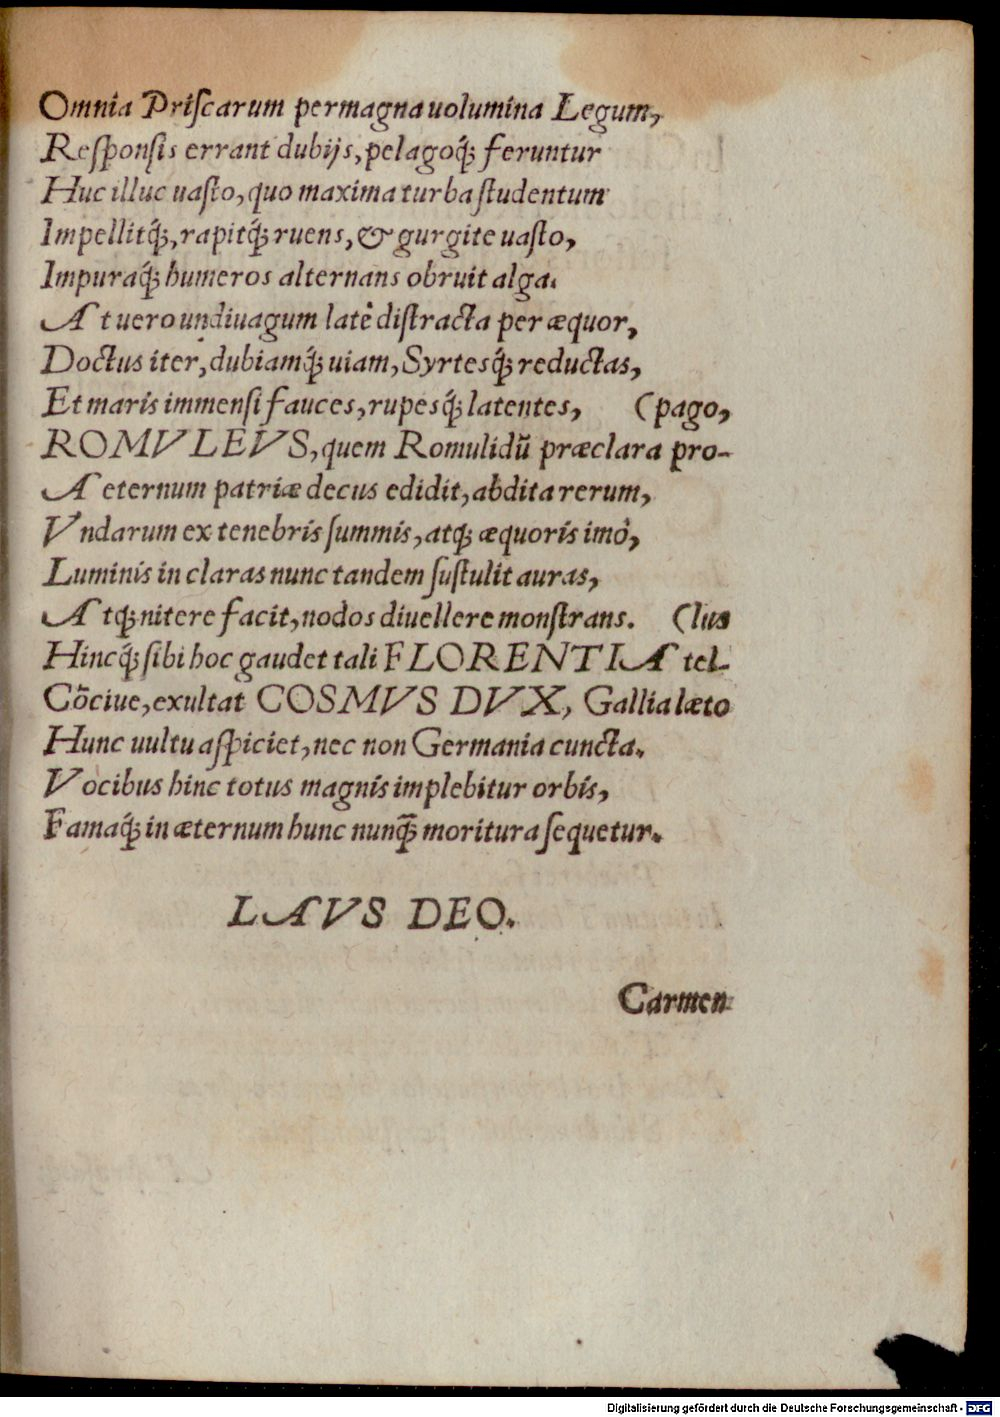 Omnia Priſcarum permagna uolumina Legum,
Reſponſis errant dubijs, pelagoq́; feruntur
Huc illuc uaſto, quo maxima turba ſtudentum
Impellitq́;, rapitq́; ruens, & gurgite uaſto,
Impuraq́; humeros alternans obruit alga.
At uero undiuagum latè diſtracta per æquor,
Doctus iter, dubiamq́; uiam, Syrtesq́; reductas,
Et maris immenſi fauces, rupesq́; latentes, (pago,
ROMVLEVS, quem Romulidū præclara pro-
Aeternum patriæ decus edidit, abdita rerum,
Vndarum ex tenebris ſummis, atq; æquoris imò,
Luminis in claras nunc tandem ſuſtulit auras,
Atq; nitere facit, nodos diuellere monſtrans. (lus
Hincq́; ſibi hoc gaudet tali FLORENTIA tel-
Cōciue, exultat COSMVS DVX, Gallia læto
Hunc uultu aſpiciet, nec non Germania cuncta.
Vocibus hinc totus magnis implebitur orbis,
Famaq́; in æternum hunc nunq̄; moritura ſequetur.
LAVS DEO.
Carmen
Digitalisierung gefördert durch die Deutsche Forschungsgemeinschaft - DFG